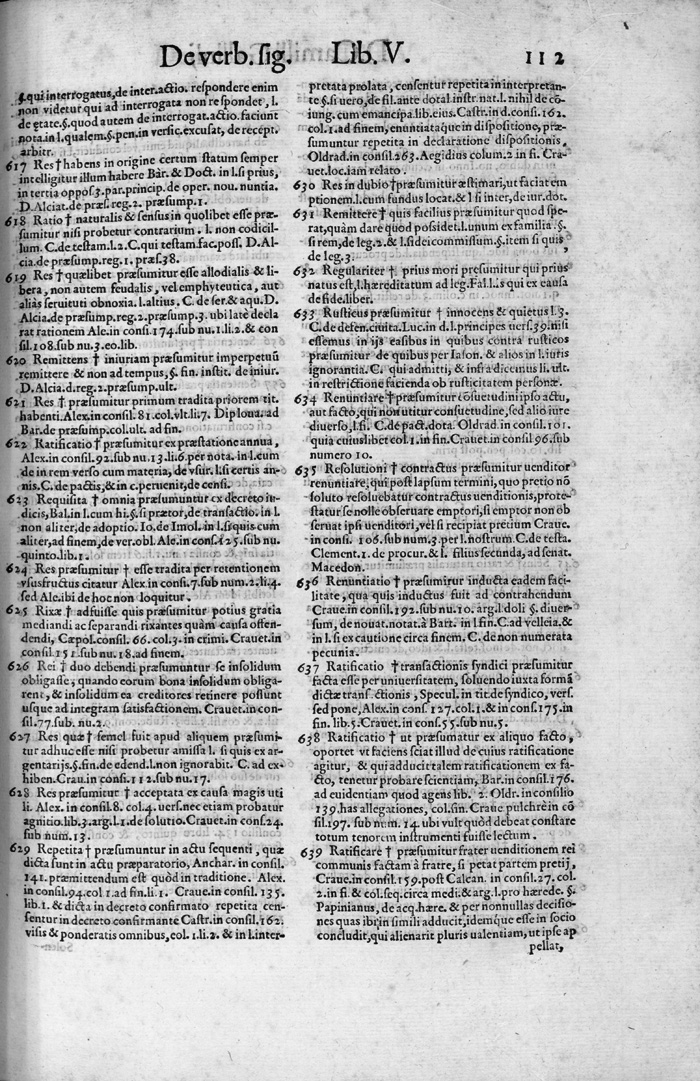 De verb. sig. Lib. V. 112
§. qui interrogatus, de inter. actio. respondere enim
non videtur qui ad interrogata non respondet, l.
de ętate. §. quod autem de interrogat. actio. faciunt
nota. in l. qualem. §. pen. in versic. excusat, de recept.
arbitr.
617 Res † habens in origine certum statum semper
intelligitur illum habere Bar. & Doct. in l. si prius,
in tertia oppos. 3. par. princip. de oper. nou. nuntia.
D. Alciat. de præs. reg. 2. præsump. 1.
618 Ratio † naturalis & sensus in quolibet esse præ-
sumitur nisi probetur contrarium. l. non codicil-
lum. C. de testam. l. 2. C. qui testam. fac. poss. D. Al-
cia. de præsump. reg. 1. præs. 38.
619 Res † quælibet præsumitur esse allodialis & li-
bera, non autem feudalis, vel emphyteutica, aut
aliàs seruituti obnoxia. l. altius. C. de ser. & aqu. D.
Alcia. de præsump. reg. 2. præsump. 3. ubi latè decla
rat rationem Ale. in consi. 174. sub nu. 1. li. 2. & con
sil. 108. sub nu. 3. eo. lib.
620 Remittens † iniuriam præsumitur imperpetuũ
remittere & non ad tempus, §. fin. instit. de iniur.
D. Alcia. d. reg. 2. præsump. ult.
621 Res † præsumitur primum tradita priorem tit.
habenti. Alex. in consil. 81. col. vlt. li. 7. Diploua. ad
Bar. de præsump. col. ult. ad fin.
622 Ratificatio † præsumitur ex præstatione annua,
Alex. in consil. 92. sub nu. 13. li. 6. per nota. in l. cum
de in rem verso cum materia, de vsur. l. si certis an-
nis. C. de pactis, & in c. peruenit, de censi.
623 Requisita † omnia præsumuntur ex decreto iu-
dicis, Bal. in l. cum hi. §. si prætor, de transactio. in l.
non aliter, de adoptio. Io. de Imol. in l. si quis cum
aliter, ad finem, de ver. obl. Ale. in consi. 125. sub nu.
quinto. lib. 1.
624 Res præsumitur † esse tradita per retentionem
vsusfructus citatur Alex. in consi. 7. sub num. 2. li. 4.
sed Ale. ibi de hoc non loquitur.
625 Rixæ † adfuisse quis præsumitur potius gratia
mediandi ac separandi rixantes quàm causa offen-
dendi, Cæpol. consil. 66. col. 3. in crimi. Crauet. in
consil. 151. sub nu. 18. ad finem.
626 Rei † duo debendi præsumuntur se insolidum
obligasse, quando eorum bona insolidum obliga-
rent, & insolidum ea creditores retinere possunt
usque ad integram satisfactionem. Crauet. in con-
sil. 77. sub. nu. 2.
627 Res quæ † semel fuit apud aliquem præsumi-
tur adhuc esse nisi probetur amissa l. si quis ex ar-
gentarijs. §. fin. de edend. l. non ignorabit. C. ad ex-
hiben. Crau. in consi. 112. sub nu. 17.
628 Res præsumitur † acceptata ex causa magis uti
li. Alex. in consil. 8. col. 4. uers. nec etiam probatur
agnitio. lib. 3. arg. l. 1. de solutio. Crauet. in cons. 24.
sub num. 13.
629 Repetita † præsumuntur in actu sequenti, quæ
dicta sunt in actu præparatorio, Anchar. in consil.
141. præmittendum est quòd in traditione. Alex.
in consi. 94. col. 1. ad fin. li. 1. Craue. in consil. 135.
lib. 1. & dicta in decreto confirmato repetita cen-
sentur in decreto confirmante Castr. in consil. 162.
visis & ponderatis omnibus, col. 1. li. 2. & in l. inter-
pretata prolata, censentur repetita in interpretan-
te §. si uero, de fil. ante dotal. instr. nat. l. nihil de cō-
iung. cum emancipa. lib. eius. Castr. in d. cons. 162.
col. 1. ad finem, enuntiataque in dispositione, præ-
sumuntur repetita in declaratione dispositionis,
Oldrad. in consil. 263. Aegidius colum. 2. in fi. Cra-
uet. loc. iam relato.
630 Res in dubio † præsumitur æstimari, ut faciat em
ptionem. l. cum fundus locat. & l. si inter, de iur. dot.
631 Remittere † quis facilius præsumitur quod spe-
rat, quàm dare quod possidet. l. unum ex familia. §.
si rem, de leg. 2. & l. fideicommissum. §. item si quis,
de leg. 3.
632 Regulariter † prius mori presumitur qui prius
natus est, l. hæreditatum ad leg. Fal. l. is qui ex causa
de fideiber.
633 Rusticus præsumitur † innocens & quietus l. 3.
C. de defen. ciuita. Luc. in d. l. principes uers. 39. nisi
essemus in ijs casibus in quibus contra rusticos
præsumitur de quibus per Iason. & alios in l. iuris
ignorantia. C. qui admitti, & infra dicemus li. ult.
in restrictione facienda ob rusticitatem personæ.
634 Renuntiare † præsumitur cōsuetudini ipso actu,
aut facto, qui non utitur consuetudine, sed alio iure
diuerso, l. si. C. de pact. dota. Oldrad. in consil. 101.
quia cuiuslibet col. 1. in fin. Crauet. in consil. 96. sub
numero 10.
635 Resolutioni † contractus præsumitur uenditor
renuntiare, qui post lapsum termini, quo pretio nō
soluto resoluebatur contractus uenditionis, prote-
statur se nolle obseruare emptori, si emptor non ob
seruat ipsi uenditori, vel si recipiat pretium Craue.
in consil. 106. sub num. 3. per l. nostrum. C. de testa.
Clement. 1. de procur. & l. filius secunda, ad senat.
Macedon.
636 Renuntiatio † præsumitur inducta eadem faci-
litate, qua quis inductus fuit ad contrahendum
Craue. in consil. 192. sub nu. 10. arg. l. doli §. diuer-
sum, de nouat. notat. à Bart. in l. fin. C. ad velleia. &
in l. si ex cautione circa finem. C. de non numerata
pecunia.
637 Ratificatio † transactionis syndici præsumitur
facta esse per uniuersitatem, soluendo iuxta formã
dictæ transactionis, Specul. in tit. de syndico, vers.
sed pone, Alex. in cons. 127. col. 1. & in cons. 175. in
fin. lib. 5. Crauet. in cons. 55. sub nu. 5.
638 Ratificatio † ut præsumatur ex aliquo facto,
oportet vt faciens sciat illud de cuius ratificatione
agitur, & qui adducit talem ratificationem ex fa-
cto, tenetur probare scientiam, Bar. in consil. 176.
ad euidentiam quod agens lib. 2. Oldr. in consilio
139. has allegationes, col. fin. Craue pulchrè in cō
sil. 197. sub num. 14. ubi vult quòd debeat constare
totum tenorem instrumenti fuisse lectum.
639 Ratificare † præsumitur frater uenditionem rei
communis factam à fratre, si petat partem pretij,
Craue. in consil. 159. post Calcan. in consil. 27. col.
2. in fi. & col. seq. circa medi. & arg. l. pro hærede. §.
Papinianus, de acq. hære. & per nonnullas decisio-
nes quas ibi in simili adducit, idemque esse in socio
concludit, qui alienarit pluris ualentiam, ut ipse ap
pellat,